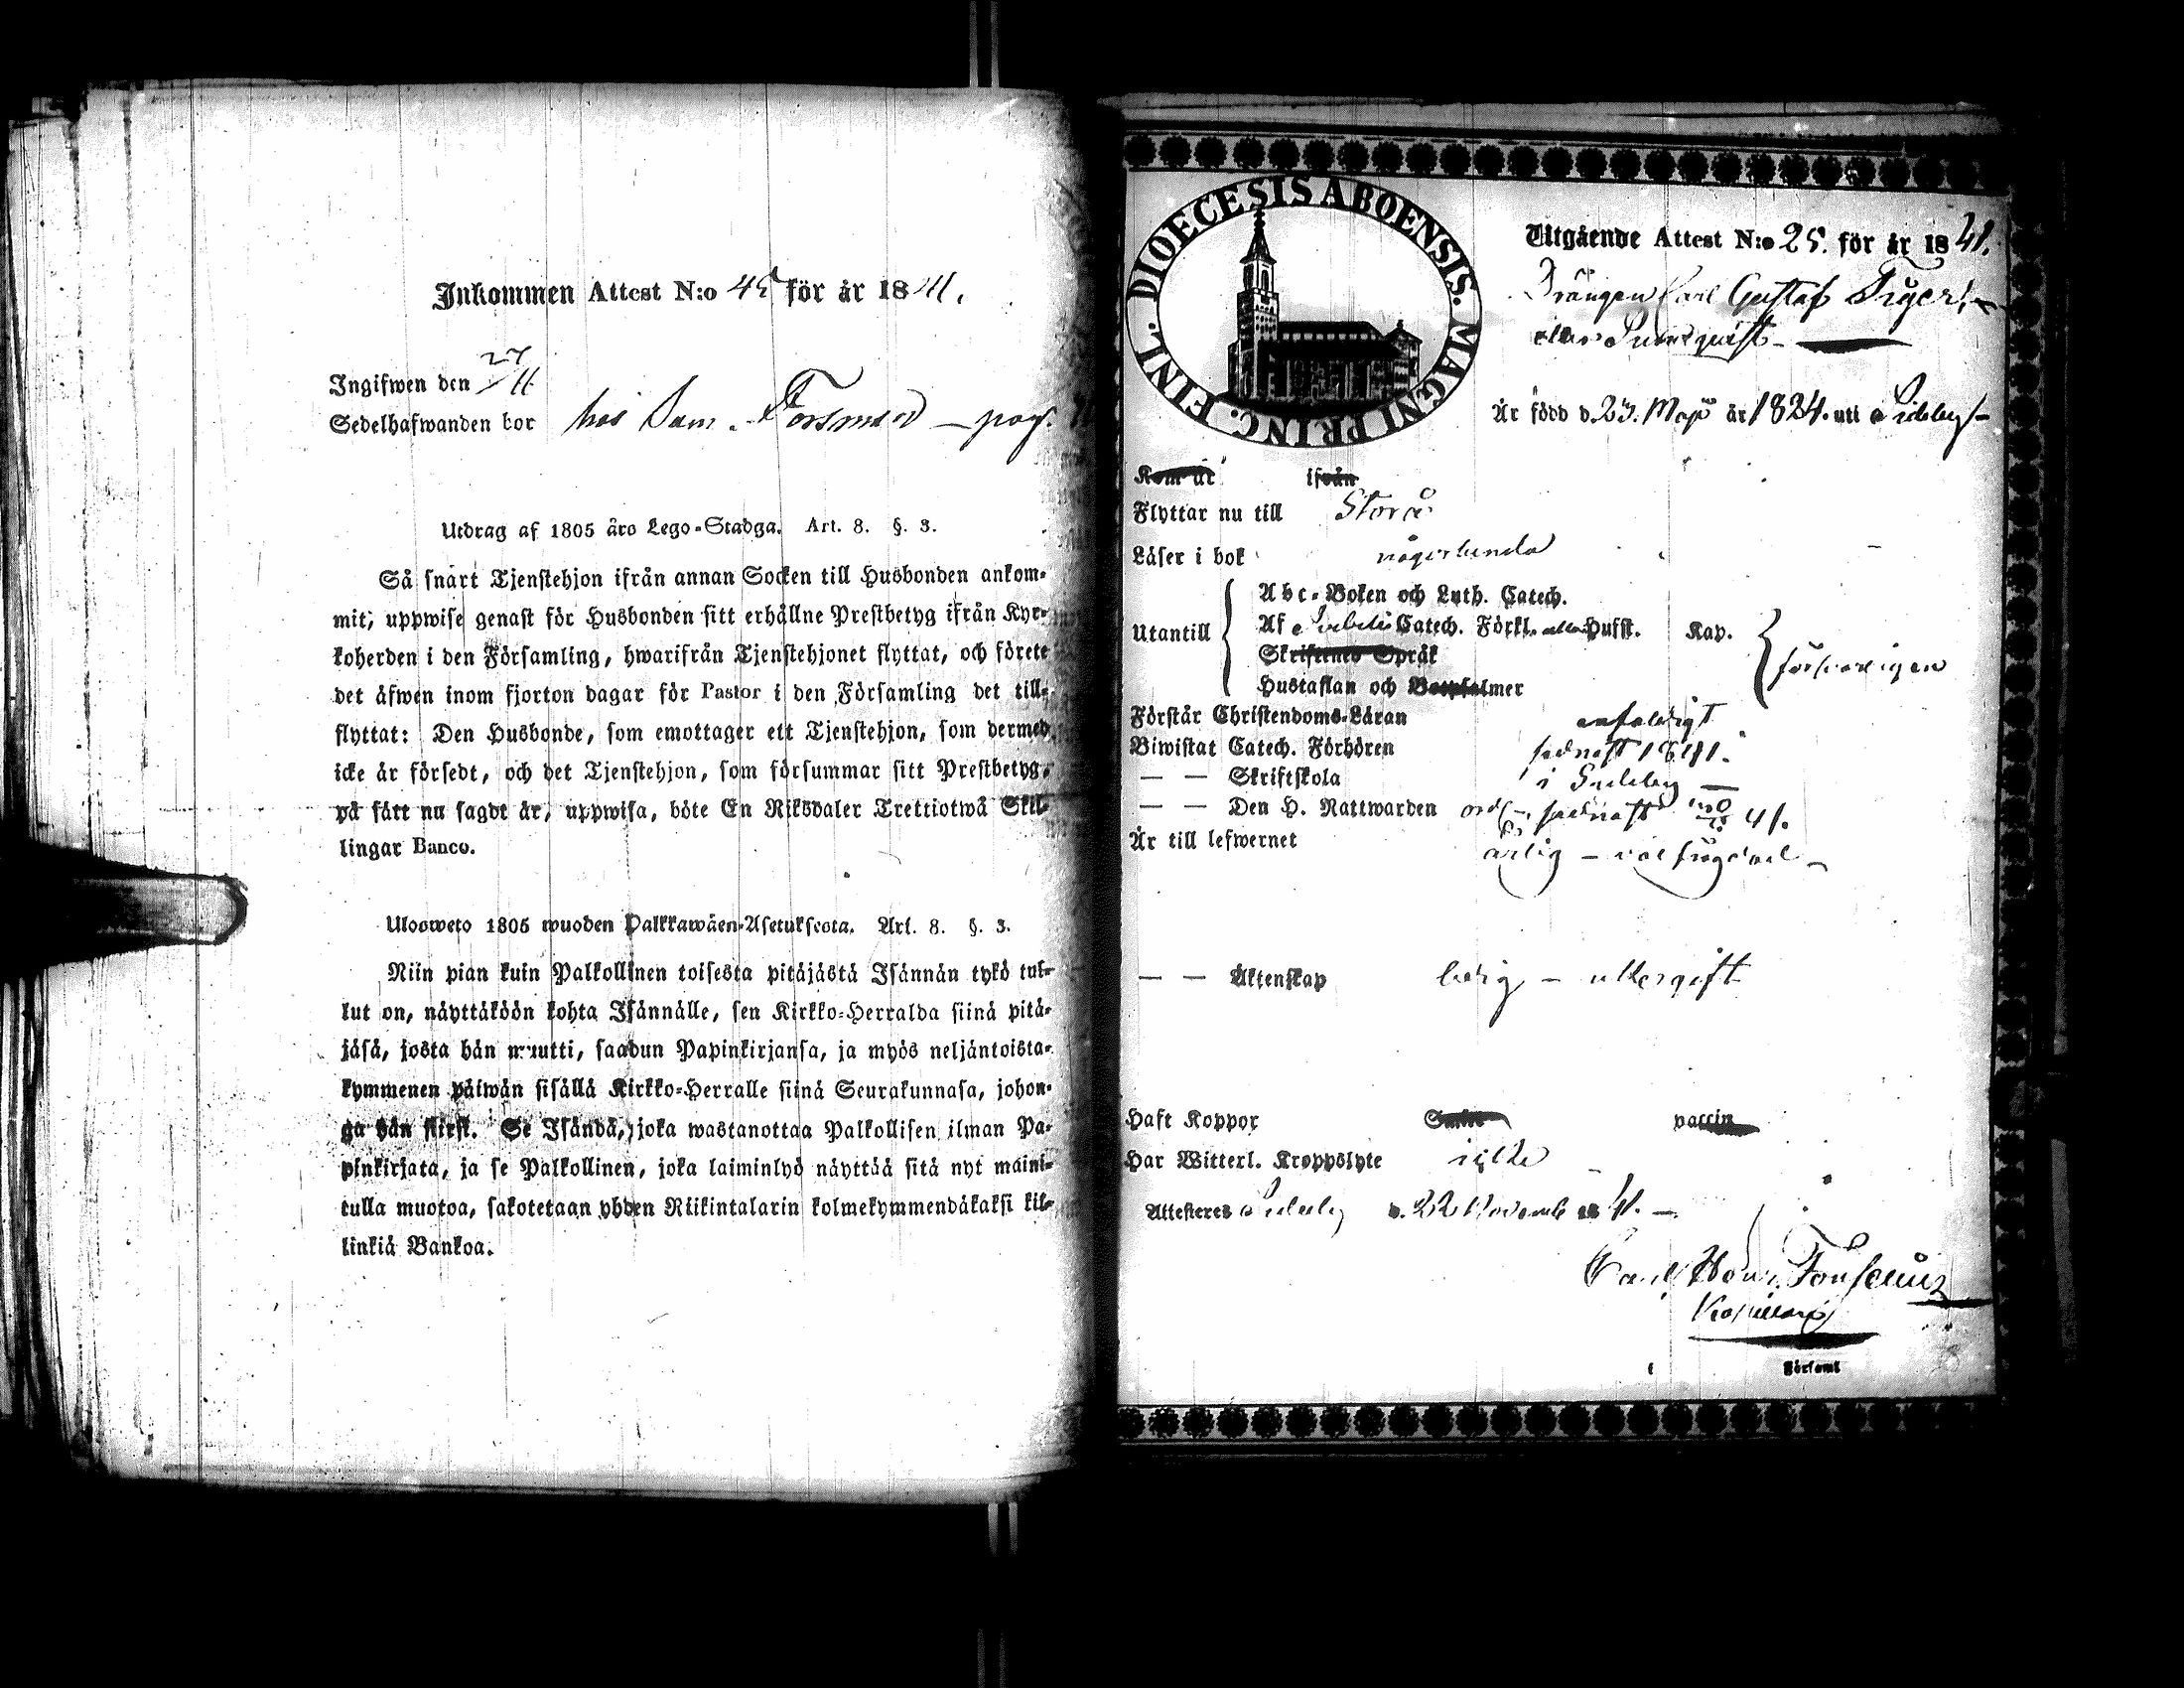 Inkommen Attest N:o 45 för år 1841.
Ingifwen den 27/11
Sedelhafwanden bor hos Sam. Forsman – pag.
Utdrag af 1805 års Lego-Stadga. Art. 8. §. 3.
Så snart Tjenstehjon ifrån annan Socken till Husbonden ankom-
mit, uppwise genast för Husbonden sitt erhållne Prestbetyg ifrån Kyr-
koherden i den Församling, hwarifrån Tjenstehjonet flyttat, och förete
det äfwen inom fjorton dagar för Pastor i den Församling det till-
flyttat: Den Husbonde, som emottager ett Tjenstehjon, som dermed
icke är försedt, och det Tjenstehjon, som försummar sitt Prestbetyg,
på sätt nu sagdt är, uppwisa, böte En Riksdaler Trettiotwå Skil-
lingar Banco.
Ulosweto 1805 wuoden Palkkawäen-Asetuksesta. Art. 8. §. 3.
Niin pian kuin Palkollinen toisesta pitäjästä Isännän tykö tul-
lut on, näyttäköön kohta Isännälle, sen Kirkko-Herralda siinä pitä-
jäsä, josta hän muutti, saadun Papinkirjansa, ja myös neljäntoista-
kymmenen päiwän sisällä Kirkko-Herralle siinä Seurakunnasa, johon-
ga hän siirsi. Se Isändä, joka wastanottaa Palkollisen ilman Pa-
pinkirjata, ja se Palkollinen, joka laiminlyö näyttää sitä nyt maini-
tulla muotoa, sakotetaan yhden Riikintalarin kolmekymmendäkaksi kil-
linkiä Bankoa.
DIOECESIS ABOENSIS. MAGNI PRINC. FINL.
Utgående Attest N:o 25. för år 1841.
Drängen Carl Gustaf
Är född d. 23. Maji år 1824. uti Sideby
Kom år ifrån
Flyttar nu till Storå
Läser i bok någorlunda
Utantill
Abc-Boken och Luth. Catech.
Af Catech. Förkl. Hufst. Kap.
Skriftenes Språk
Hustaflan och Botpsalmer
försvarligen
Förstår Christendoms-Läran enfaldigt
Biwistat Catech. Förhören sednast 1841.
— — Skriftskola i Sideby
— — Den H. Nattwarden sednast 41.
Är till lefwernet ärlig – väl frejdad
— — Äktenskap ledig – ogift
Haft Koppor Smitt vaccin
Har Witterl. Kroppslyte icke
Attesteras Sideby d. 22 Novemb 1841.
Carl Henr.
Kapellan
i Församl